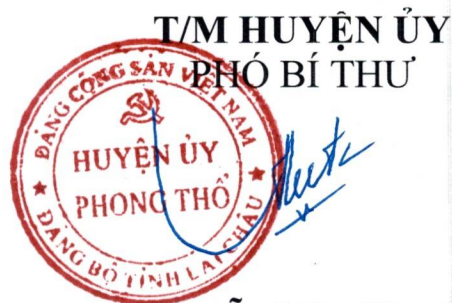 T/M HUYỆN ỦY
PHÓ BÍ THƯ
ĐẢNG CỘNG SẢN VIỆT NAM
HUYỆN ỦY
PHONG THỔ
ĐẢNG BỘ TỈNH LAI CHÂU